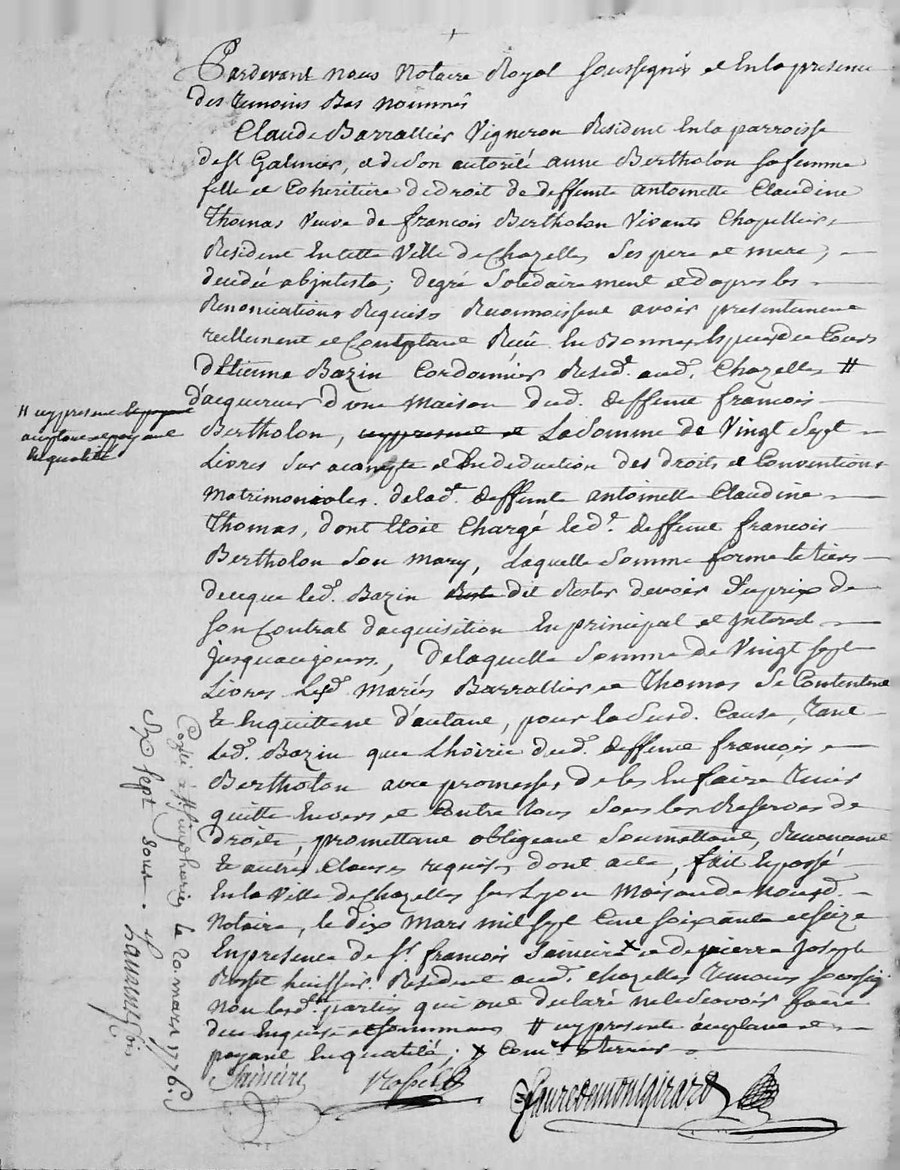 Pardevant nous Notaire Royal soussignés et En la presence
des temoins Bas nommés
Claude Barrallier Vigneron Resident En la parroisse
de St Galmier, et de son autorité anne Bertholon sa femme
fille et Coheritiere de droit de deffunte antoinette Claudine
Thomas Veuve de françois Bertholon Vivants Chapelliers
Resident En cette Ville de Chazelles ses pere et mere,
decedée abjntesta; degré solidairement et d'apres les
Renonciations Requises Reconnoissent avoir presentement
reellement et Comptant Reçu En Bonnes Especes de Cours
d'Etienne Bazin Cordonnier Resid.t aud. Chazelles #
d'acquereur d'une maison dud. deffunt francois
Bertholon, icy present et La somme de Vingt Sept
Livres sur acompte et En deduction des droits et Conventions
Matrimoniales de lad.e deffunte antoinette Claudine
Thomas, dont Etoit Chargé led.t deffunt francois
Bertholon son mary, Laquelle somme forme le tiers
de ce que led. Bazin Reste dit Rester devoir Du prix de
son Contrat d'acquisition En principal et Jnterest
Jusqu'aujours, de laquelle somme de Vingt sept
Livres Lesd. Mariés Barrallier et Thomas se Contentent
Et En quittent d'autant, pour la susd. Cause, Tant
Led. Bazin que L'hoirie dud. deffunt françois
Bertholon avec promesses de les En faire Tenir
quitte Envers et Contre tous sous les Reserves de
droits, promettant obligeant soumettant, Renonçant
Et autres Clauses requises dont acte, fait Et passé
En la Ville de Chazelles sur Lyon Maison de Nousd.
Notaire, le dix Mars mil sept Cent soixante et seize
En presence de Sr. francois Sainieix et de pierre Joseph
huissier Resident aud. Chazelles Temoins soussig
non lesd. parties qui ont declaré ne le sçavoir faire
de ce Enquises et sommees # icy presente acceptant et
payant En qualité; x Com.re a terrier
# icy present
acceptant et payant
En qualité
Controlé à St Simphorien le 20 mars 1776
Rx sept sous
faure de montgirard